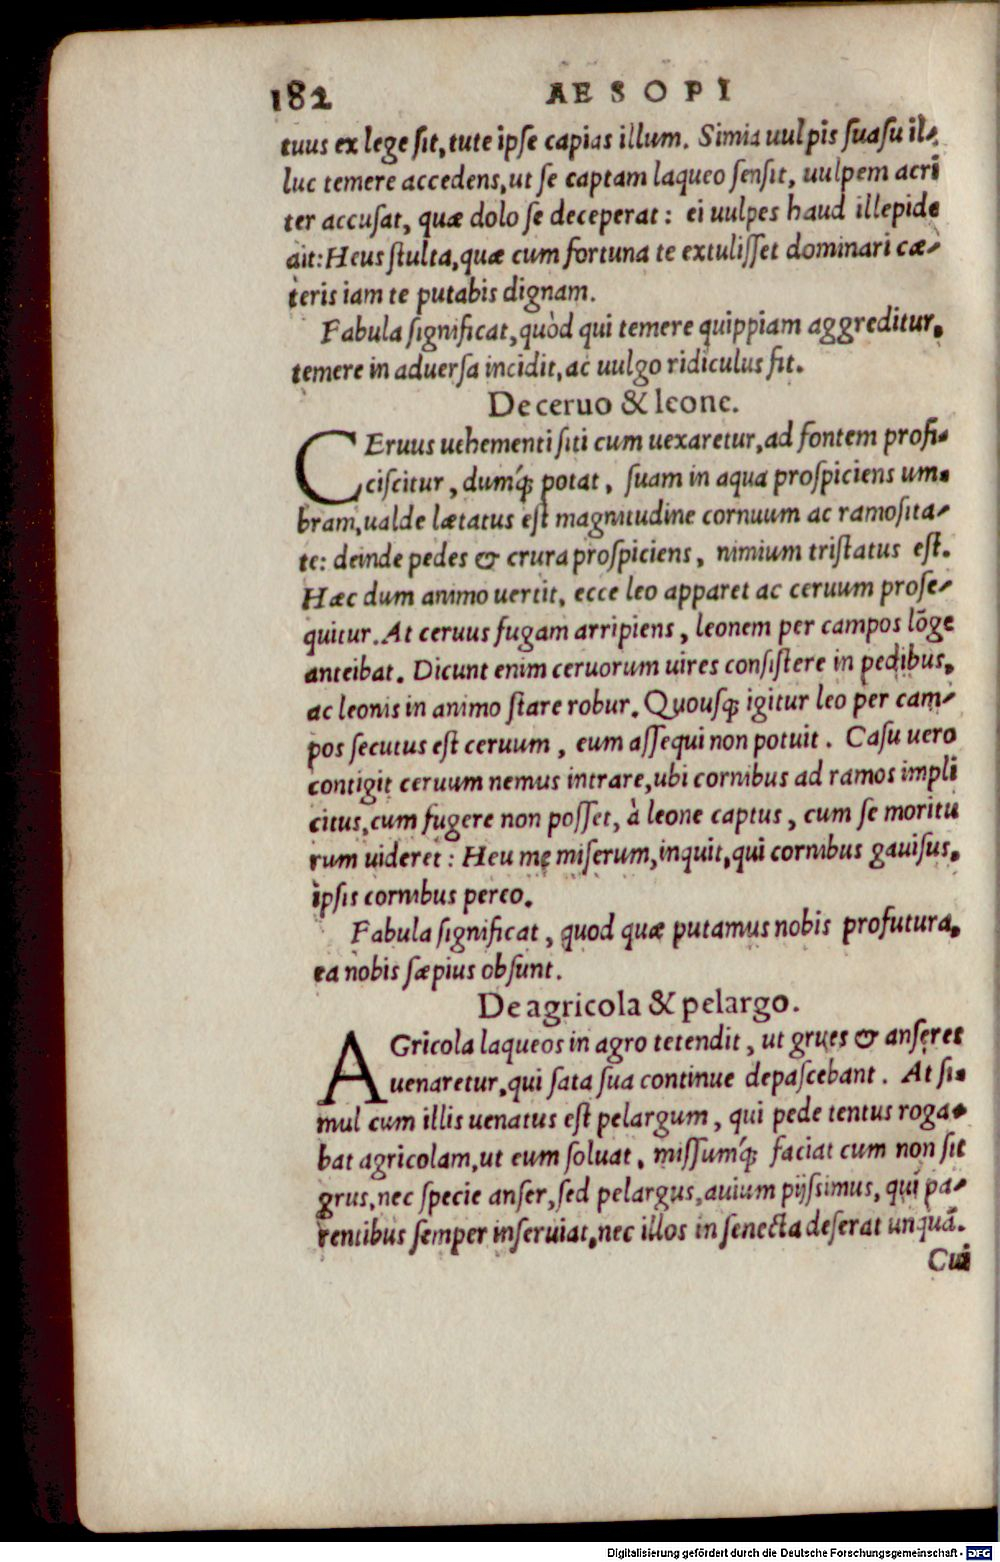 182 AESOPI
tuus ex lege ſit, tute ipſe capias illum. Simia uulpis ſuaſu il-
luc temere accedens, ut ſe captam laqueo ſenſit, uulpem acri
ter accuſat, quæ dolo ſe deceperat: ei uulpes haud illepide
ait: Heus ſtulta, quæ cum fortuna te extuliſſet dominari cæ-
teris iam te putabis dignam.
Fabula ſignificat, quòd qui temere quippiam aggreditur,
temere in aduerſa incidit, ac uulgo ridiculus fit.
De ceruo & leone.
CEruus uehementi ſiti cum uexaretur, ad fontem profi-
ciſcitur, dumq́; potat, ſuam in aqua proſpiciens um-
bram, ualde lætatus eſt magnitudine cornuum ac ramoſita-
te: deinde pedes & crura proſpiciens, nimium triſtatus eſt.
Hæc dum animo uertit, ecce leo apparet ac ceruum proſe-
quitur. At ceruus fugam arripiens, leonem per campos lõge
anteibat. Dicunt enim ceruorum uires conſiſtere in pedibus,
ac leonis in animo ſtare robur. Quouſq; igitur leo per cam-
pos ſecutus eſt ceruum, eum aſſequi non potuit. Caſu uero
contigit ceruum nemus intrare, ubi cornibus ad ramos impli
citus, cum fugere non poſſet, à leone captus, cum ſe moritu
rum uideret: Heu me miſerum, inquit, qui cornibus gauiſus,
ipſis cornibus pereo.
Fabula ſignificat, quod quæ putamus nobis profutura,
ea nobis ſæpius obſunt.
De agricola & pelargo.
AGricola laqueos in agro tetendit, ut grues & anſeres
uenaretur, qui ſata ſua continue depaſcebant. At ſi-
mul cum illis uenatus eſt pelargum, qui pede tentus roga-
bat agricolam, ut eum ſoluat, miſſumq́; faciat cum non ſit
grus, nec ſpecie anſer, ſed pelargus, auium pijſsimus, qui pa-
rentibus ſemper inſeruiat, nec illos in ſenecta deſerat unquã.
Cui
Digitalisierung gefördert durch die Deutsche Forschungsgemeinschaft - DFG